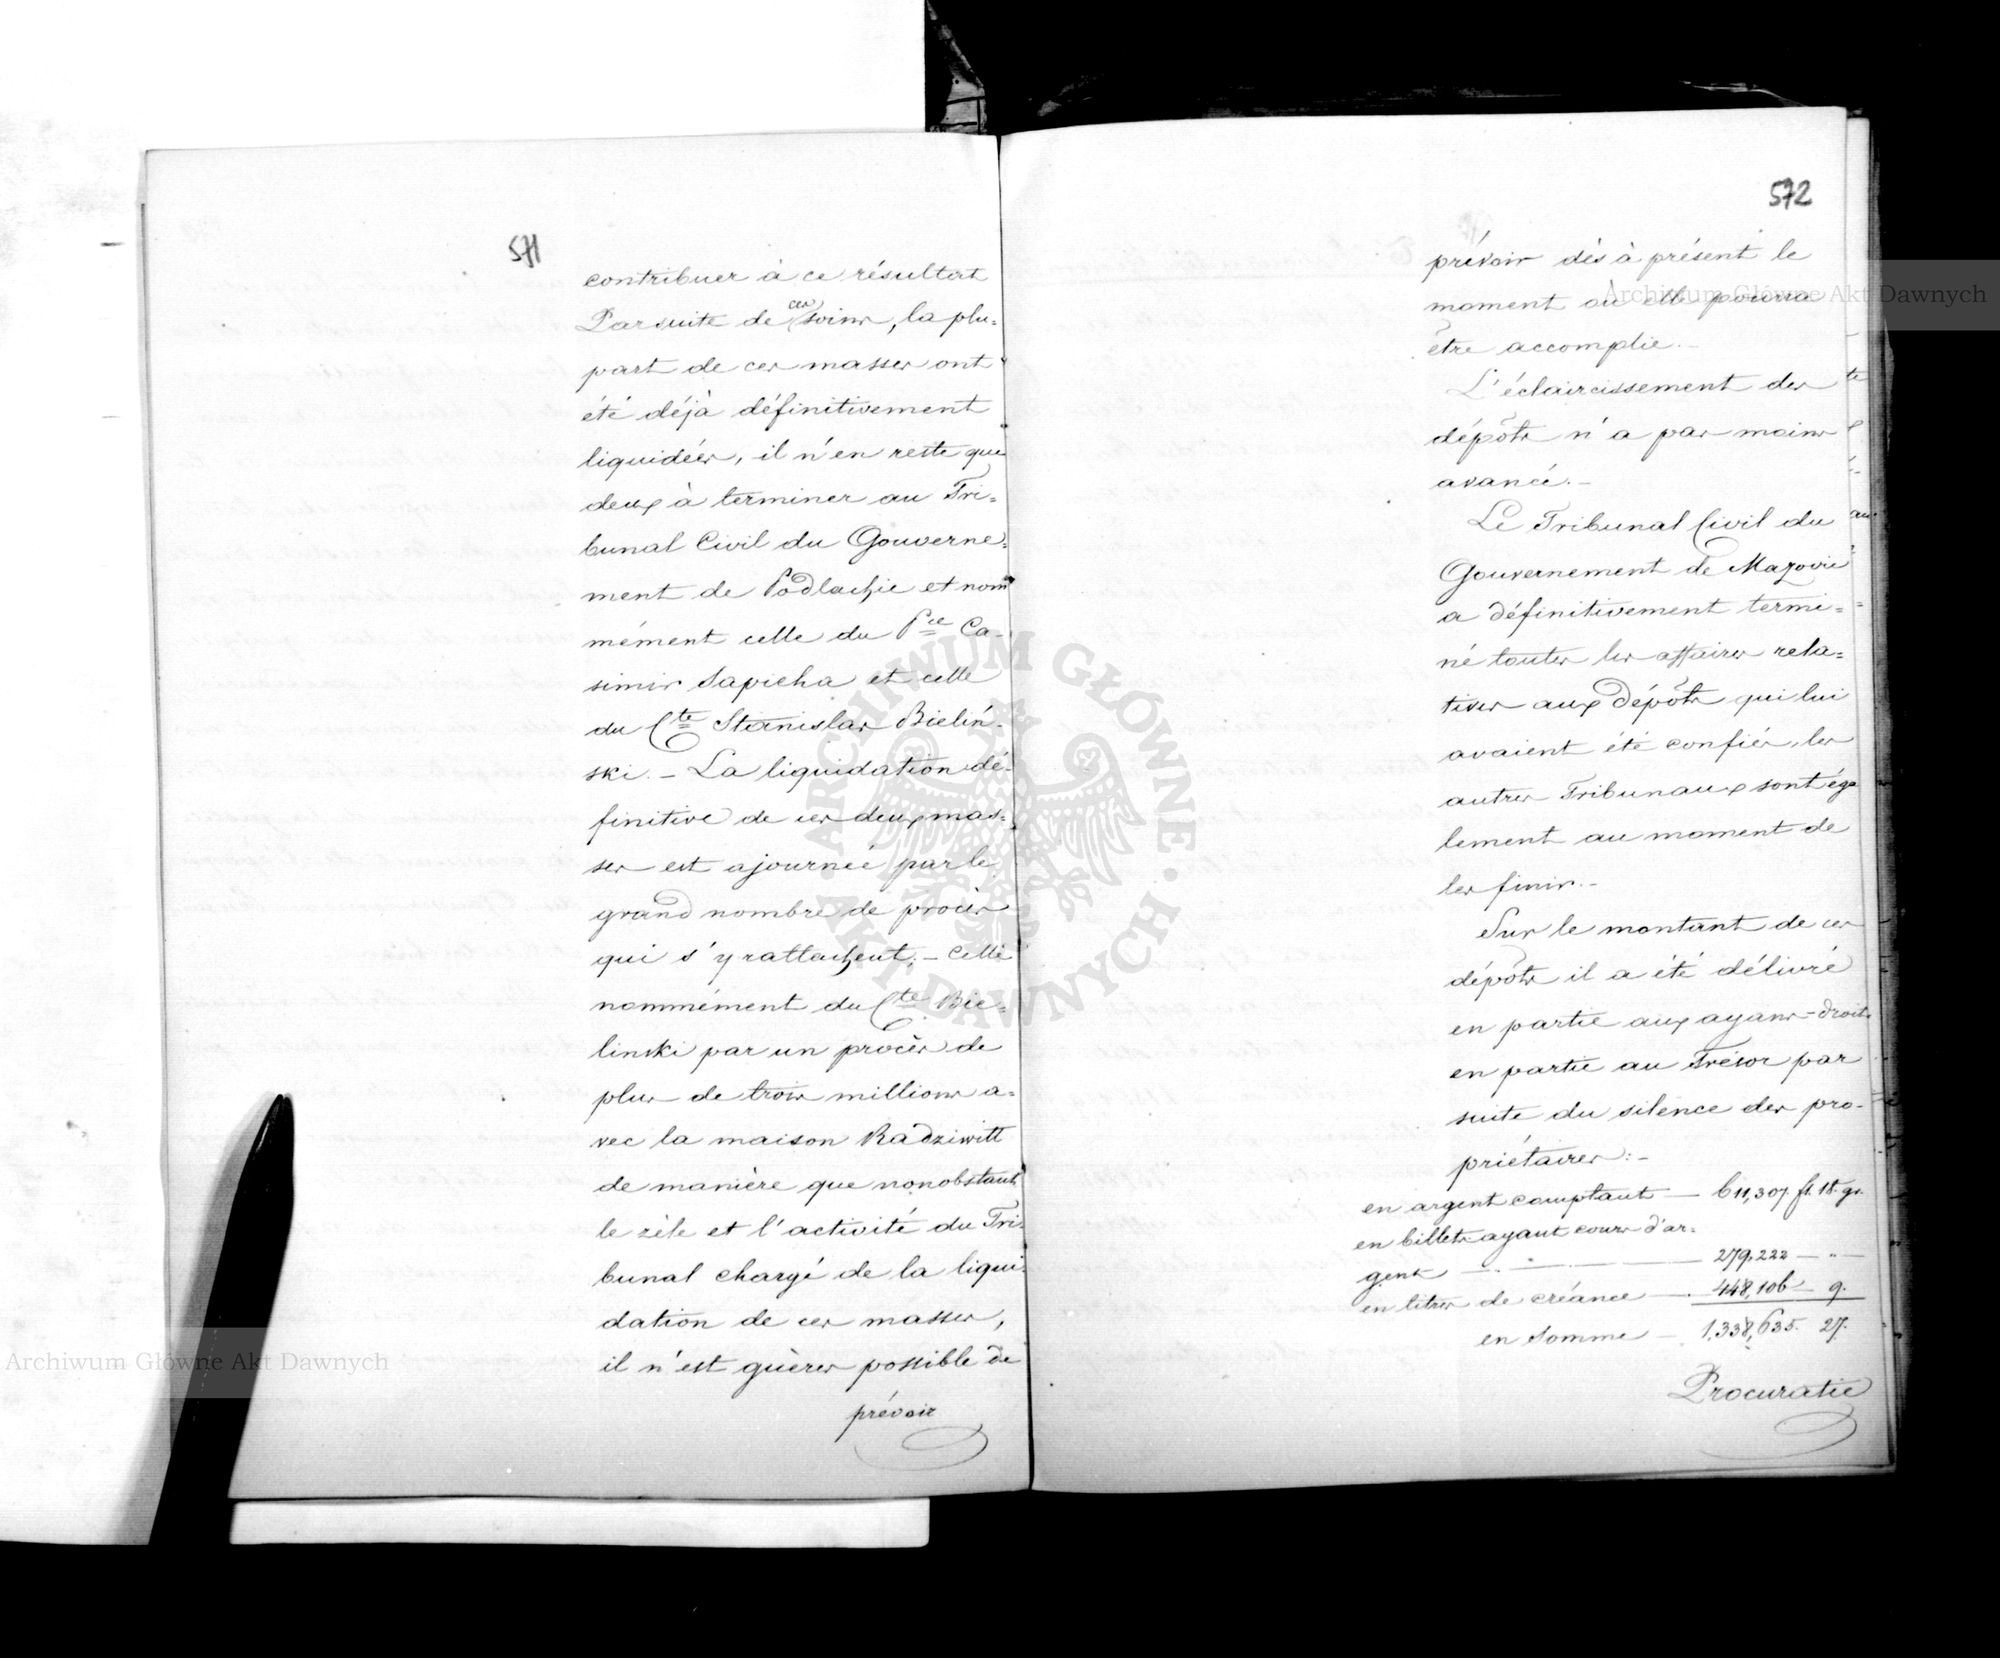 571
contribuer à ce résultat
Par suite de ces soins, la plu=
part de ces masses ont
été déjà définitivement
liquidées, il n'en reste que
deux à terminer au Tri=
bunal Civil du Gouverne=
ment de Podlachie et nom
mément celle du Pce Ca-
simir Sapieha et celle
du Cte Stanislas Bieliń-
ski. – La liquidation dé-
finitive de ces deux mas=
ses est ajournée par le
grand nombre de procès
qui s'y rattachent; – celle
nommément du Cte Bie=
linski par un procès de
plus de trois millions a=
vec la maison Radziwill
de manière que nonobstant
le zèle et l'activité du Tri=
bunal chargé de la liqui=
dation de ces masses,
il n'est guères possible de
prévoir
572
prévoir dès à présent le
moment où elle pourra
être accomplie. –
L'éclaircissement des
dépôts n'a pas moins
avancé. –
Le Tribunal Civil du
Gouvernement de Mazovie
a définitivement termi=
né toutes les affaires rela=
tives aux dépôts qui lui
avaient été confiés, les
autres Tribunaux sont éga
lement au moment de
les finir. –
Sur le montant de ces
dépôts il a été délivré
en partie aux ayans-droits
en partie au Trésor par
suite du silence des pro-
priétaires: –
en argent comptant — 611,307. fl. 18. gr.
en billets ayant cours d'ar=
gent — 279,222 — " —
en titres de créance — 448,106 — 9.
en Somme — 1,338,635. 27.
Procuratie
Archiwum Główne Akt Dawnych
Archiwum Główne Akt Dawnych
ARCHIWUM GŁÓWNE · AKT DAWNYCH ·